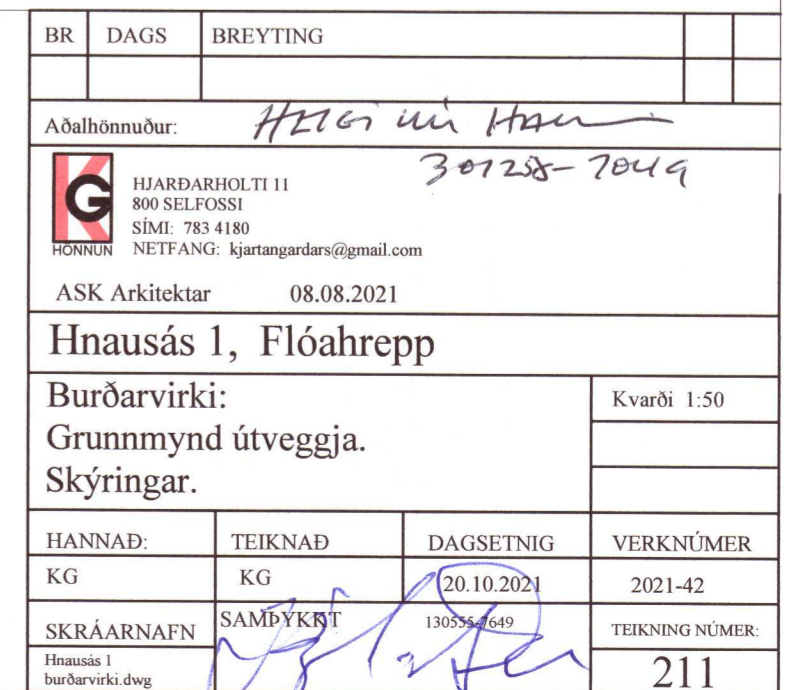 BR DAGS BREYTING
Aðalhönnuður:
301258-7049
KG
HÖNNUN
HJARÐARHOLTI 11
800 SELFOSSI
SÍMI: 783 4180
NETFANG: kjartangardars@gmail.com
ASK Arkitektar 08.08.2021
Hnausás 1, Flóahrepp
Burðarvirki:
Grunnmynd útveggja.
Skýringar.
Kvarði 1:50
HANNAÐ: TEIKNAÐ DAGSETNIG VERKNÚMER
KG KG 20.10.2021 2021-42
SKRÁARNAFN SAMÞYKKT 130555-7649 TEIKNING NÚMER:
Hnausás 1
burðarvirki.dwg
211